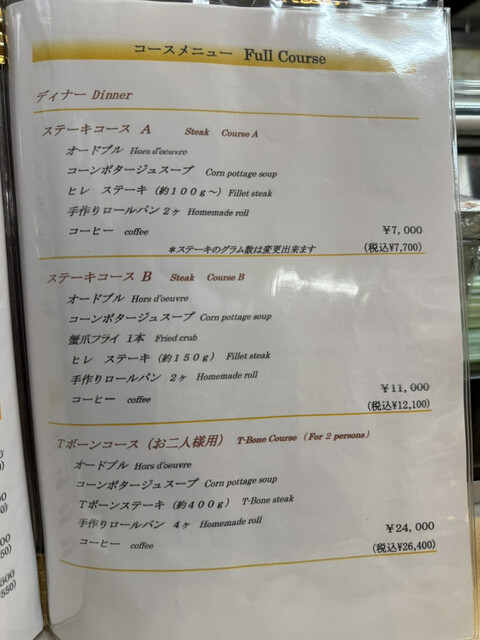 コースメニュー Full Course
ディナー Dinner
ステーキコース A Steak Course A
オードブル Hors d'oeuvre
コーンポタージュスープ Corn pottage soup
ヒレ ステーキ (約100g～) Fillet steak
手作りロールパン 2ヶ Homemade roll
コーヒー coffee
￥7,000
*ステーキのグラム数は変更出来ます (税込¥7,700)
ステーキコース B Steak Course B
オードブル Hors d'oeuvre
コーンポタージュスープ Corn pottage soup
蟹爪フライ 1本 Fried crub
ヒレ ステーキ (約150g) Fillet steak
手作りロールパン 2ヶ Homemade roll
コーヒー coffee
￥11,000
(税込¥12,100)
Tボーンコース (お二人様用) T-Bone Course (For 2 persons)
オードブル Hors d'oeuvre
コーンポタージュスープ Corn pottage soup
Tボーンステーキ (約400g) T-Bone steak
手作りロールパン 4ヶ Homemade roll
コーヒー coffee
￥24,000
(税込¥26,400)